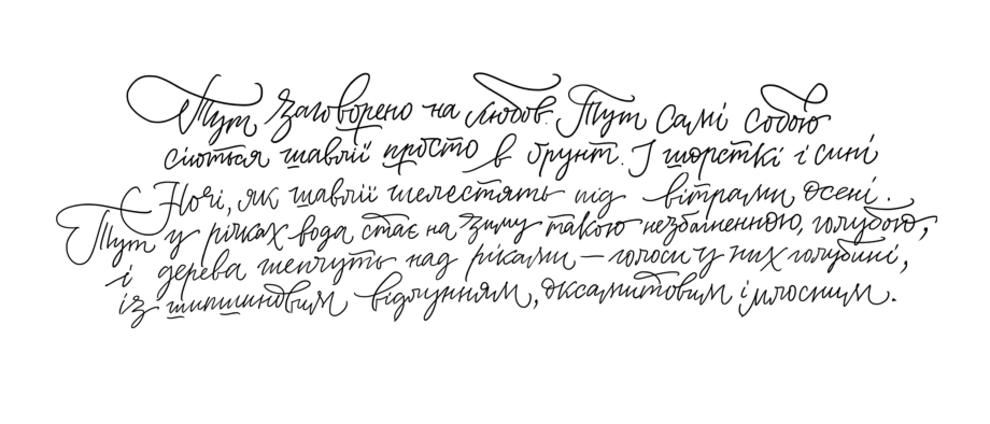 Тут заговорено на любов. Тут самі собою
сіються шавлії просто в ґрунт. І шорсткі і сині
Ночі, як шавлії шелестять під вітрами осені.
Тут у річках вода стає на зиму такою незбагненною, голубою,
і дерева шепчуть над ріками – голоси у них голубині,
із шипшиновим відлунням, оксамитовим і млосним.